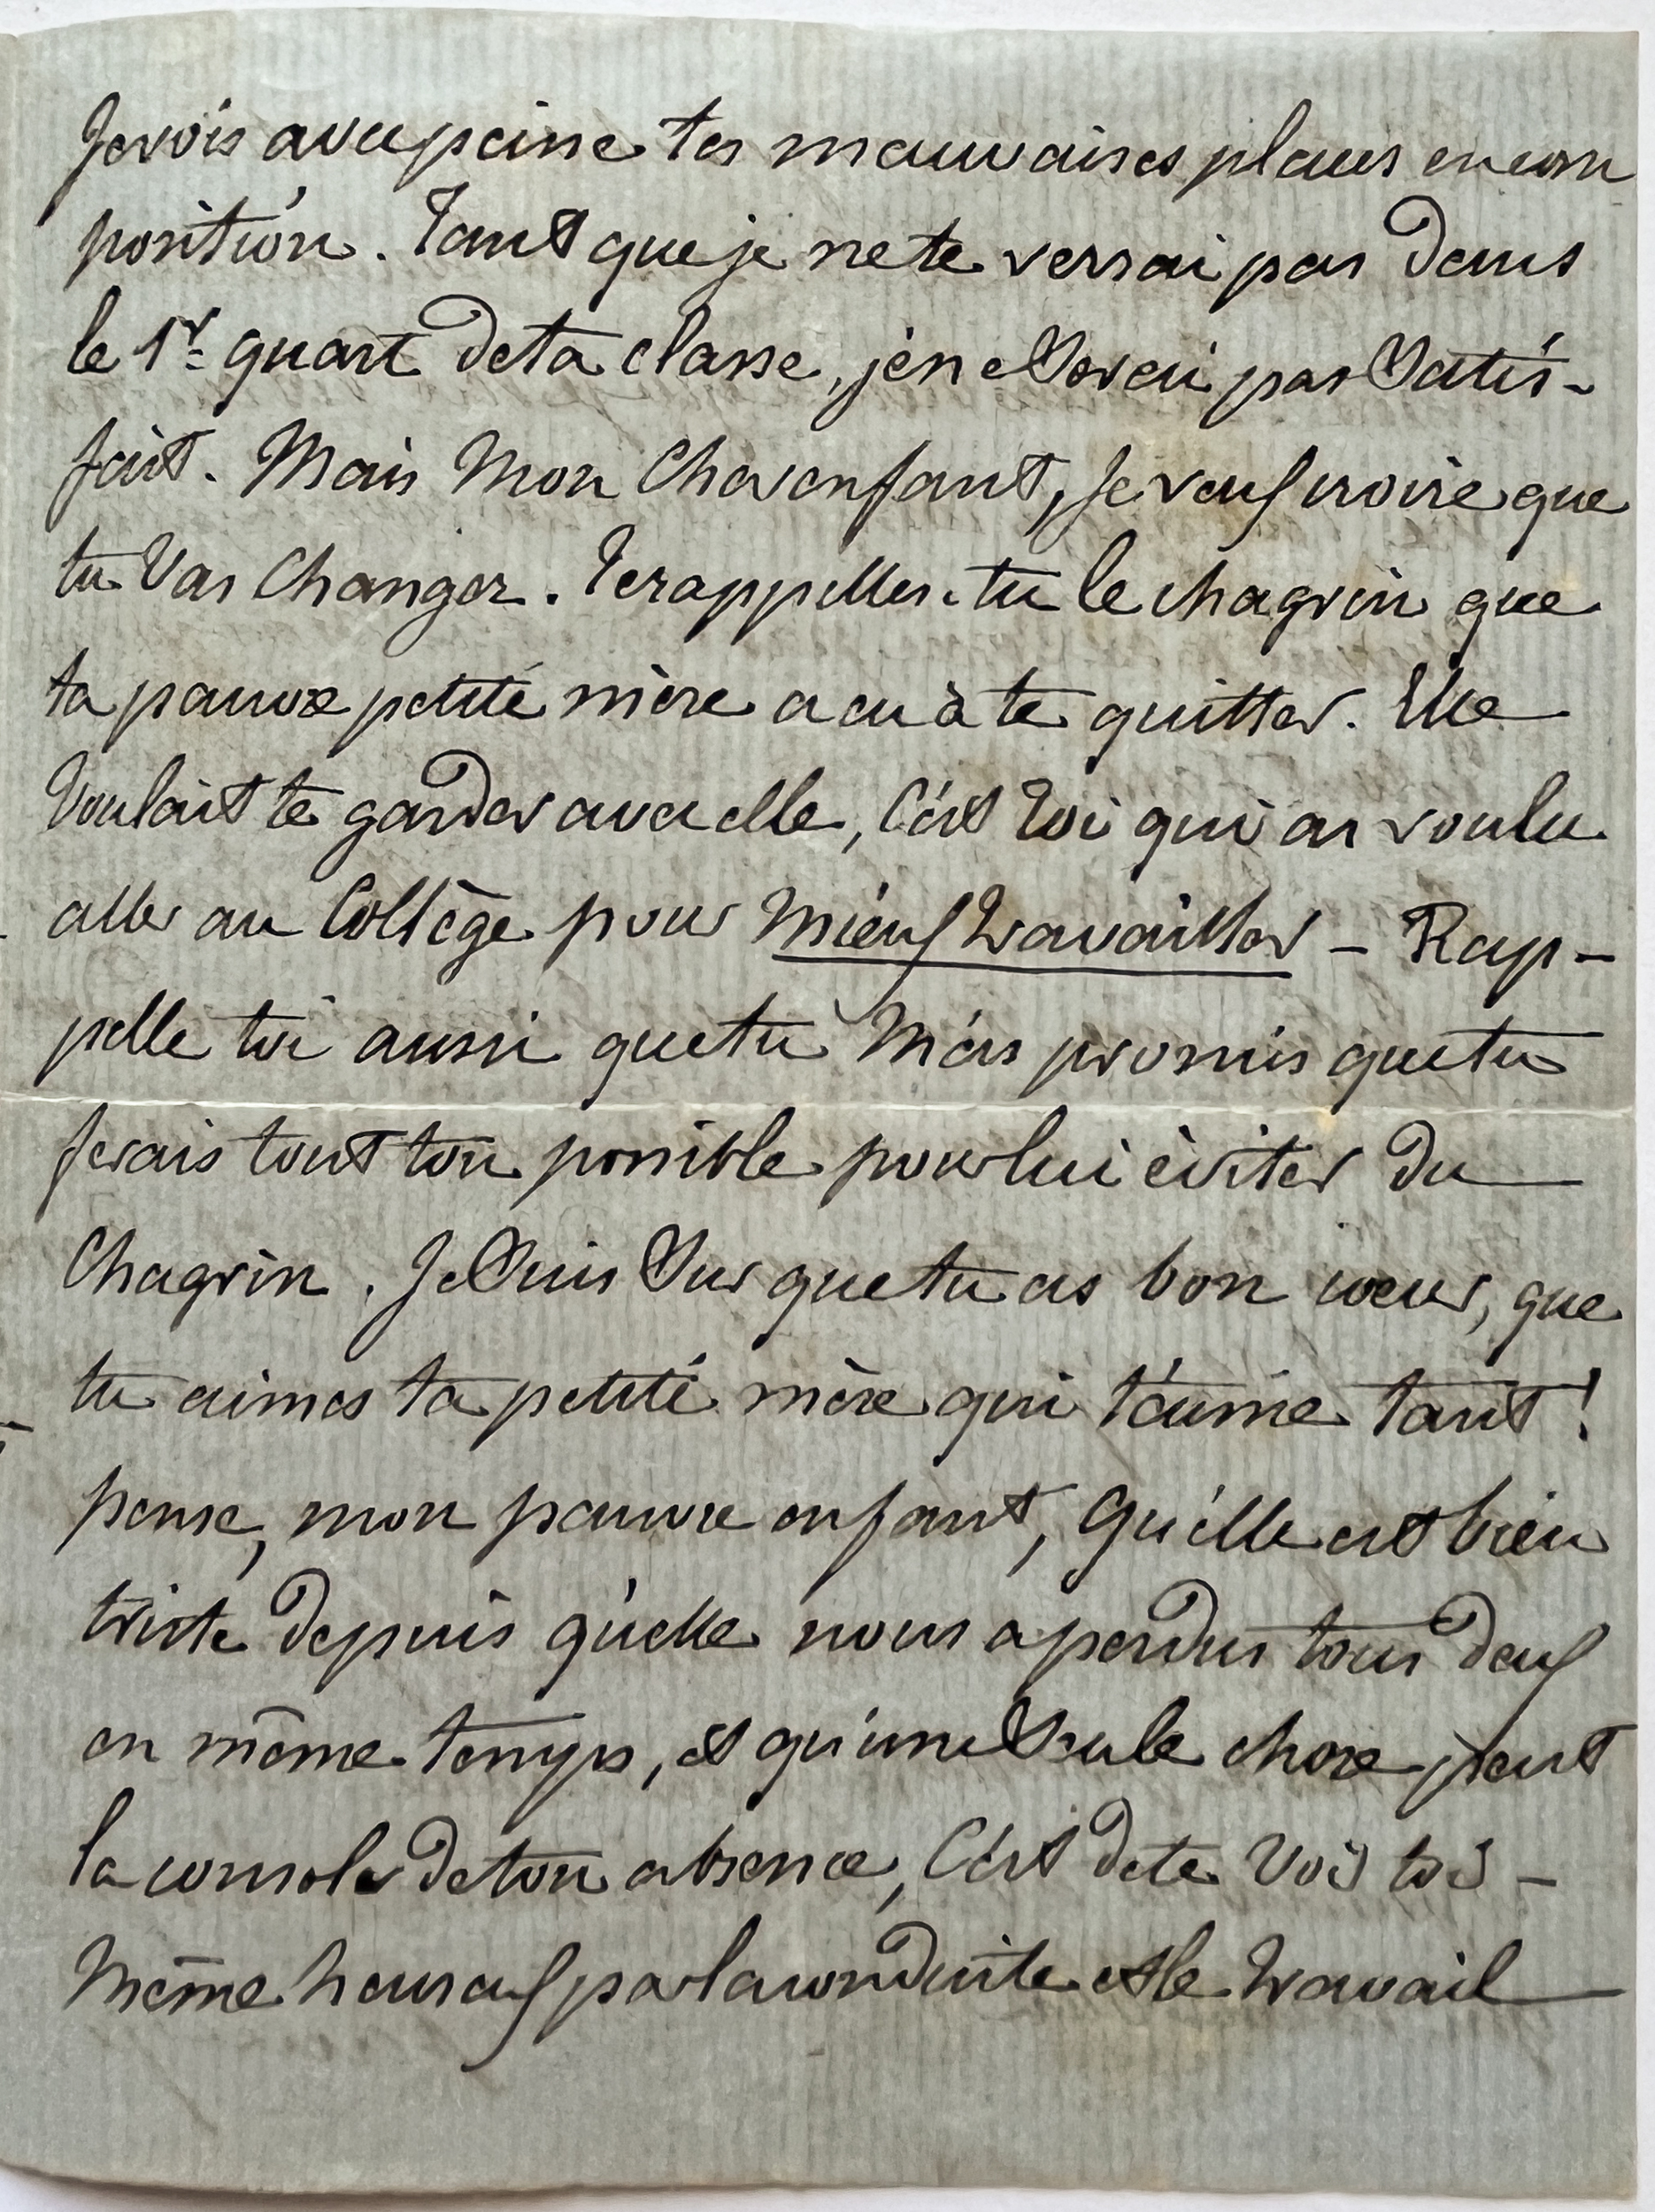 Je vois avec peine tes mauvaises places en com
position. Tant que je ne te verrai pas dans
le 1r. quart de ta classe, je ne serai pas satis-
fait. Mais Mon Cher enfant, je veux croire que
tu Vas Changer. Te rappelles-tu le chagrin que
ta pauvre petite mère a eu à te quitter. Elle
Voulait te garder avec elle, C'est toi qui as voulu
aller au Collège pour Mieux travailler - Rap-
pelle toi aussi que tu M'as promis que tu
ferais tout ton possible pour lui éviter du
Chagrin. Je suis sur que tu as bon cœur, que
tu aimes ta petite mère qui t'aime tant !
pense, mon pauvre enfant, Qu'elle est bien
triste depuis qu'elle nous a perdus tous deux
en même temps, et qu'une seule chose peut
la consoler de ton absence, C'est de te Voir toi-
Même heureux par la conduite et le travail